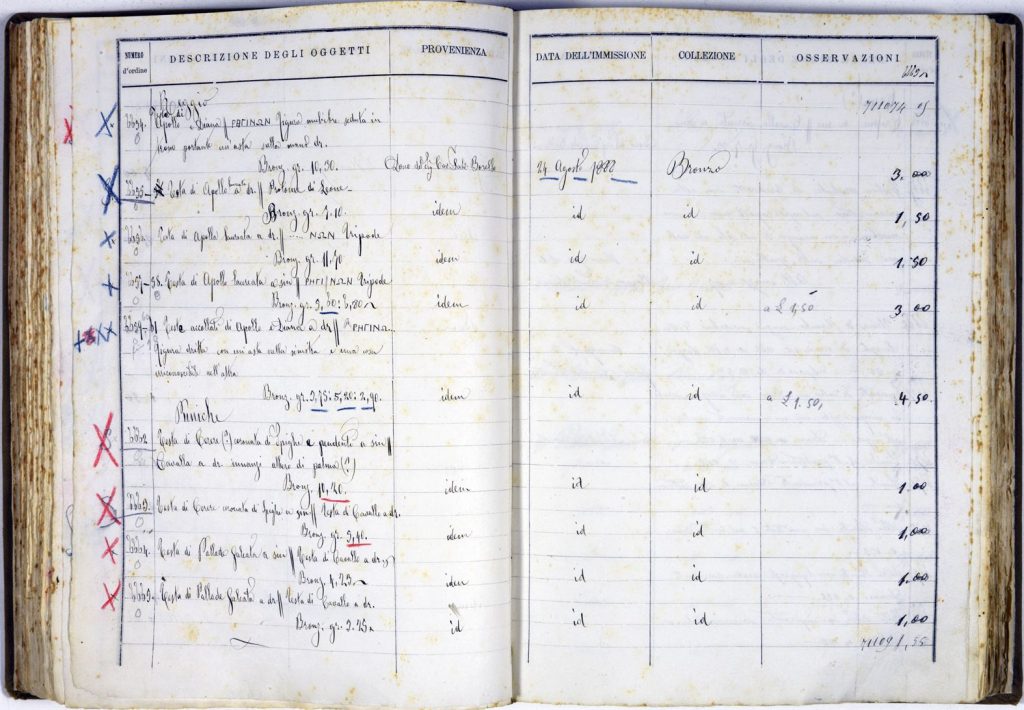 NUMERO d'ordine
DESCRIZIONE DEGLI OGGETTI
PROVENIENZA
DATA DELL'IMMISSIONE
COLLEZIONE
OSSERVAZIONI
Reggio
711074 05
6654. Apollo e Diana // ΡΗΓΙΝΩΝ Figura muliebre seduta in
trono portante un'asta nella mano dr.
Bronz. gr. 10,50. Dono del Sig. Cav. 24 Agosto 1882 Bronzo 3,00
6655 Testa di Apollo a dr // Protome di Leone
Bronz. gr. 3.10. idem id id 1,50
6656 Testa di Apollo laureata a dr // ..... ΝΩΝ Tripode
Bronz. gr. 11.70 idem id id 1.50
6657-58. Testa di Apollo laureata a sin // ΡΗΓΙ/ΝΩΝ Tripode
Bronz. gr. 3,60: 3,80 idem id id a £ 1,50 3,00
6659-61 Teste accollate di Apollo e Diana a dr // ΡΗΓΙΝΩ..
Figura dritta con un'asta nella sinistra e una cosa
irriconoscibile nell'altra
Bronz. gr. 3,75: 5,20: 2,90. idem id id a £ 1.50, 4,50
Puniche
6662 Testa di Cerere (?) coronata di spighe e pendente a sin //
Cavallo a dr. innanzi albero di palma (?)
Bronz. 11,20. idem id id 1.00
6663. Testa di Cerere coronata di spighe a sin // Testa di Cavallo a dr.
Bronz. gr. 5,40. idem id id 1,00
6664. Testa di Pallade galeata a sin // Testa di Cavallo a dr.
Bronz. 4,25 idem id id 1.00
6665. Testa di Pallade galeata a dr // Testa di Cavallo a dr.
Bronz. gr. 2.25 id id id 1,00
711091,55